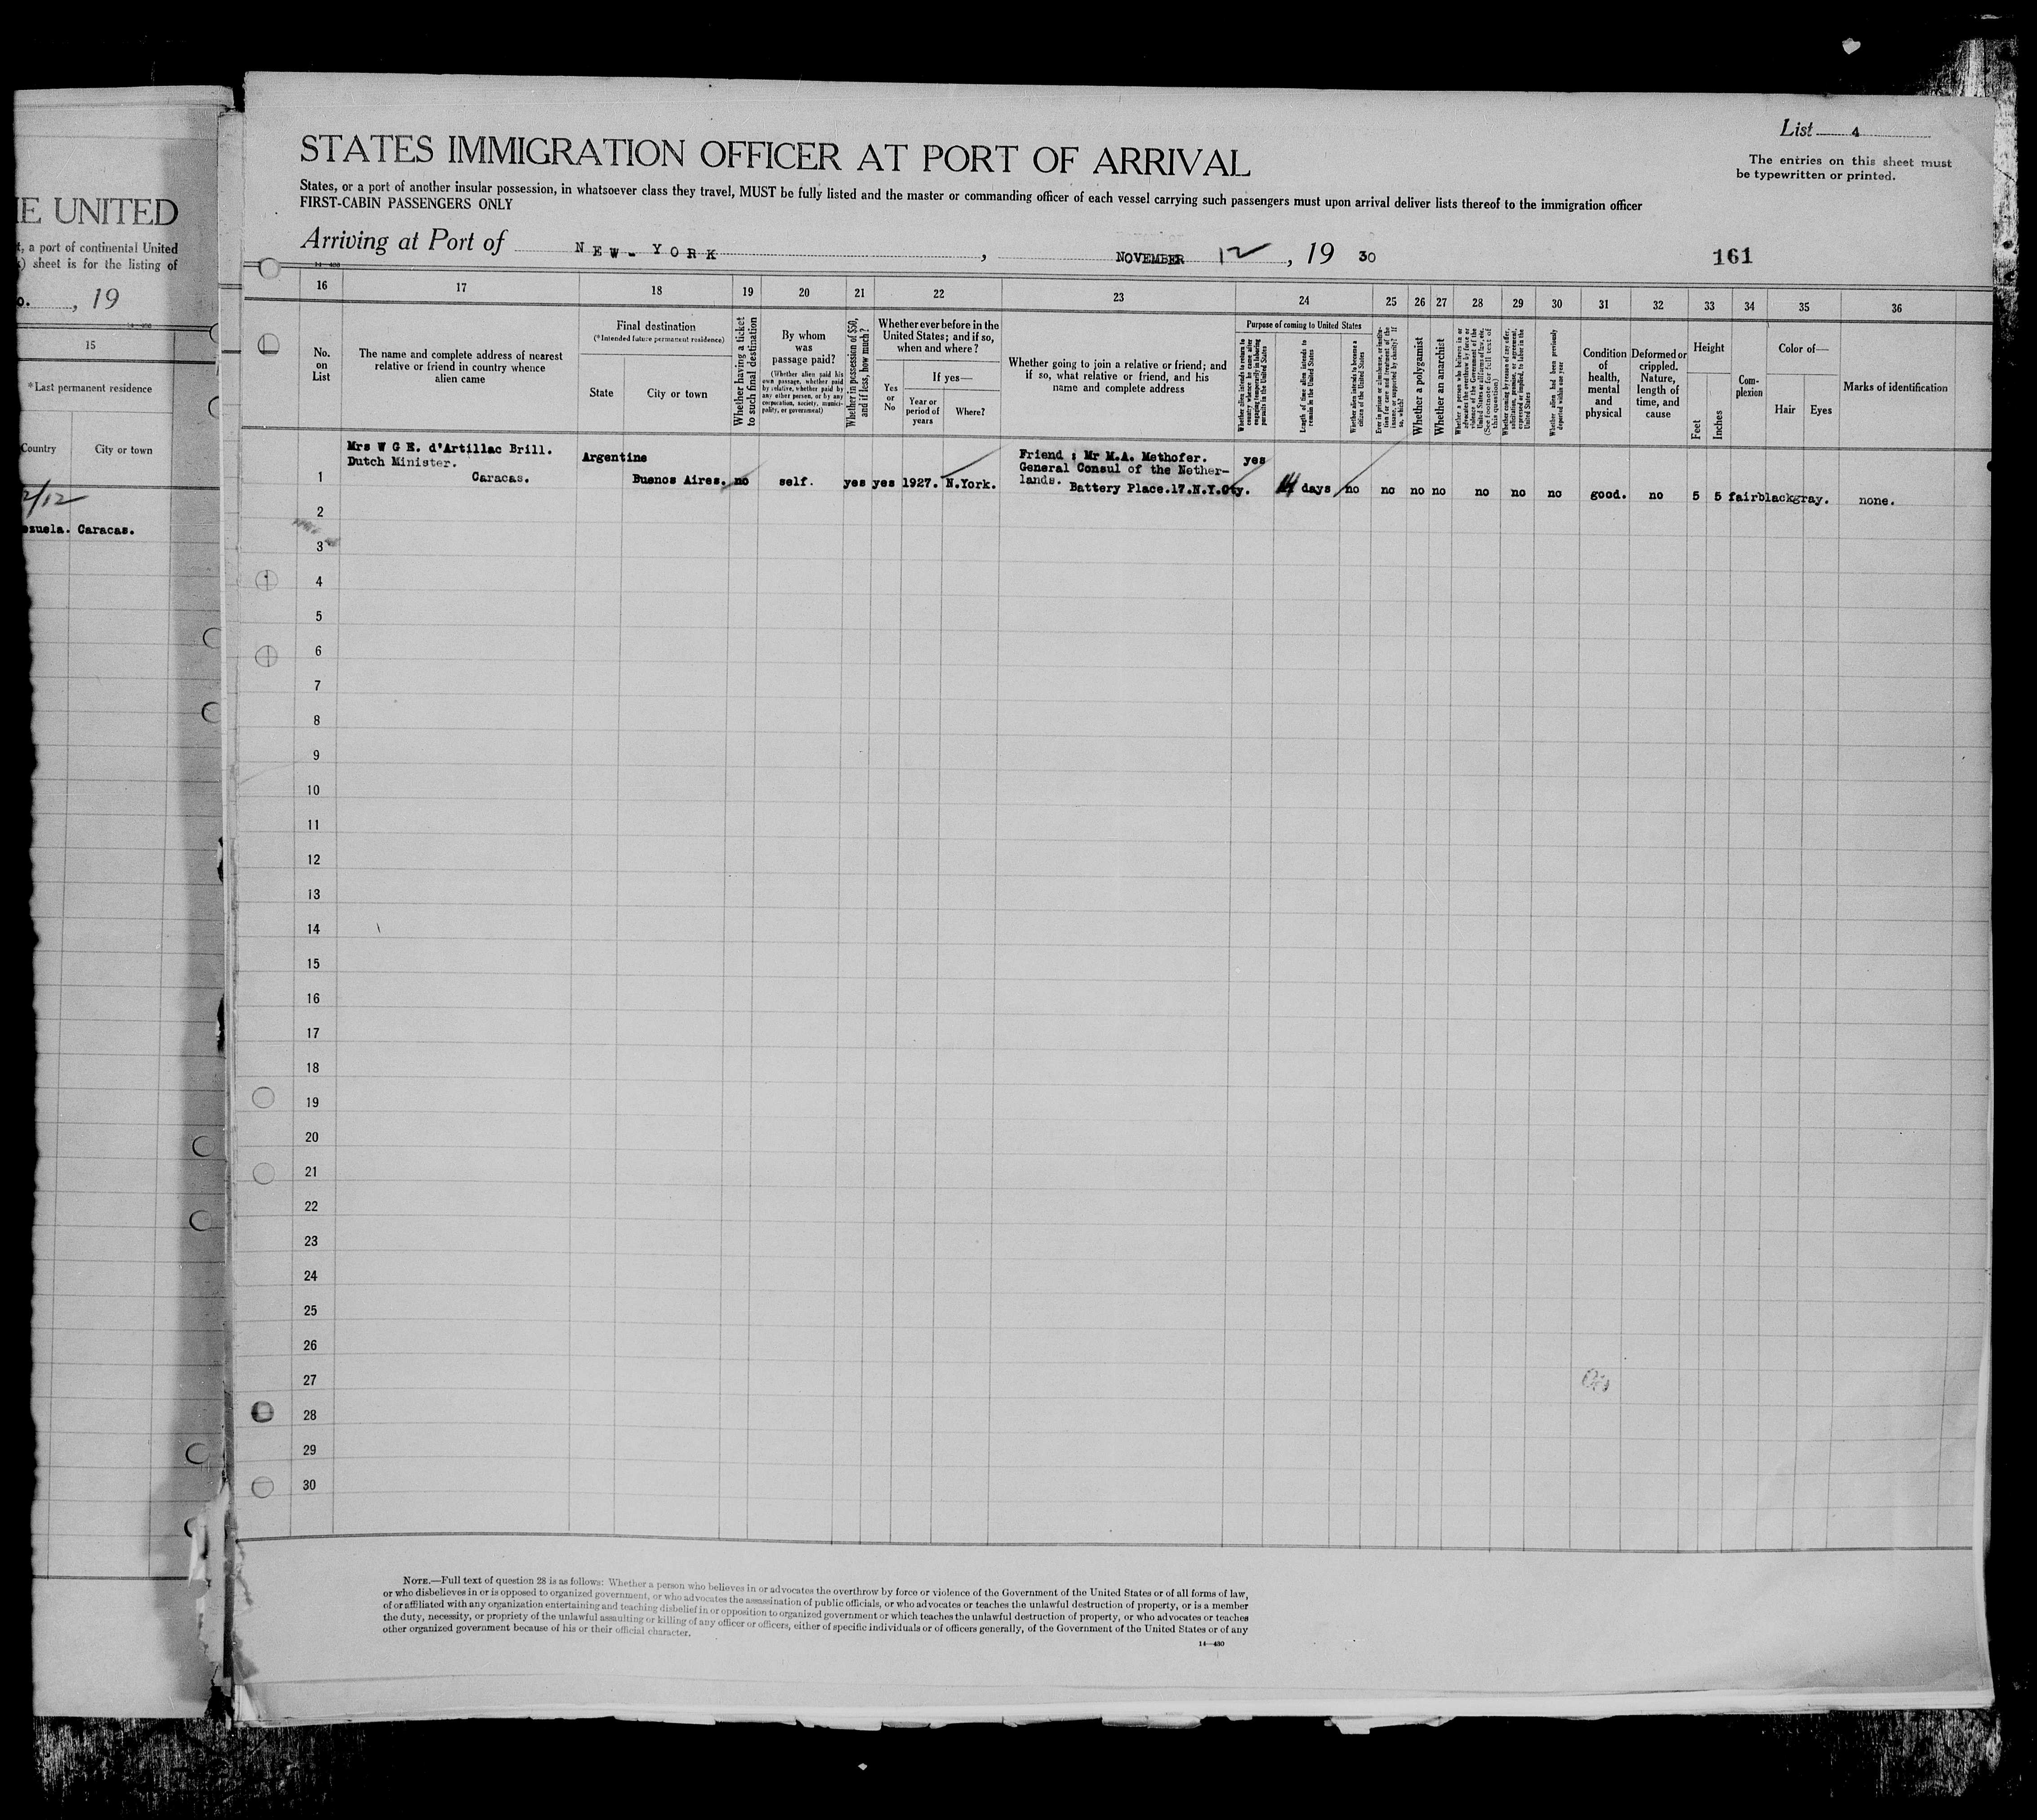 E UNITED
t, a port of continental United
) sheet is for the listing of
o. , 19
14—480
15
*Last permanent residence
Country
City or town
2/12
ezuela. Caracas.
List 4
The entries on this sheet must
be typewritten or printed.
STATES IMMIGRATION OFFICER AT PORT OF ARRIVAL
States, or a port of another insular possession, in whatsoever class they travel, MUST be fully listed and the master or commanding officer of each vessel carrying such passengers must upon arrival deliver lists thereof to the immigration officer
FIRST-CABIN PASSENGERS ONLY
Arriving at Port of NEW-YORK , NOVEMBER 12 , 19 30
161
14—480
16 17 18 19 20 21 22 23 24 25 26 27 28 29 30 31 32 33 34 35 36
No.
on
List
The name and complete address of nearest
relative or friend in country whence
alien came
Final destination
(*Intended future permanent residence)
State
City or town
Whether having a ticket
to such final destination
By whom
was
passage paid?
(Whether alien paid his
own passage, whether paid
by relative, whether paid by
any other person, or by any
corporation, society, munici-
pality, or government)
Whether in possession of $50,
and if less, how much?
Whether ever before in the
United States; and if so,
when and where?
If yes—
Yes
or
No
Year or
period of
years
Where?
Whether going to join a relative or friend; and
if so, what relative or friend, and his
name and complete address
Purpose of coming to United States
Whether alien intends to return to
country whence he came after
engaging temporarily in laboring
pursuits in the United States
Length of time alien intends to
remain in the United States
Whether alien intends to become a
citizen of the United States
Ever in prison or almshouse, or institu-
tion for care and treatment of the
insane, or supported by charity? If
so, which?
Whether a polygamist
Whether an anarchist
Whether a person who believes in or
advocates the overthrow by force or
violence of the Government of the
United States or all forms of law, etc.
(See footnote for full text of
this question)
Whether coming by reason of any offer,
solicitation, promise, or agreement,
expressed or implied, to labor in the
United States
Whether alien had been previously
deported within one year
Condition
of
health,
mental
and
physical
Deformed or
crippled.
Nature,
length of
time, and
cause
Height
Feet
Inches
Com-
plexion
Color of—
Hair
Eyes
Marks of identification
Mrs W G E. d'Artillac Brill.
Dutch Minister.
Caracas.
Argentine
Buenos Aires. no self. yes yes 1927. N.York.
Friend : Mr M.A. Methofer.
General Consul of the Nether-
lands.
Battery Place.17.N.Y.Cty.
yes
14 days no no no no no no no good. no 5 5 fair black gray. none.
1
2
3
4
5
6
7
8
9
10
11
12
13
14
15
16
17
18
19
20
21
22
23
24
25
26
27
28
29
30
NOTE.—Full text of question 28 is as follows: Whether a person who believes in or advocates the overthrow by force or violence of the Government of the United States or of all forms of law,
or who disbelieves in or is opposed to organized government, or who advocates the assassination of public officials, or who advocates or teaches the unlawful destruction of property, or is a member
of or affiliated with any organization entertaining and teaching disbelief in or opposition to organized government or which teaches the unlawful destruction of property, or who advocates or teaches
the duty, necessity, or propriety of the unlawful assaulting or killing of any officer or officers, either of specific individuals or of officers generally, of the Government of the United States or of any
other organized government because of his or their official character.
14—480